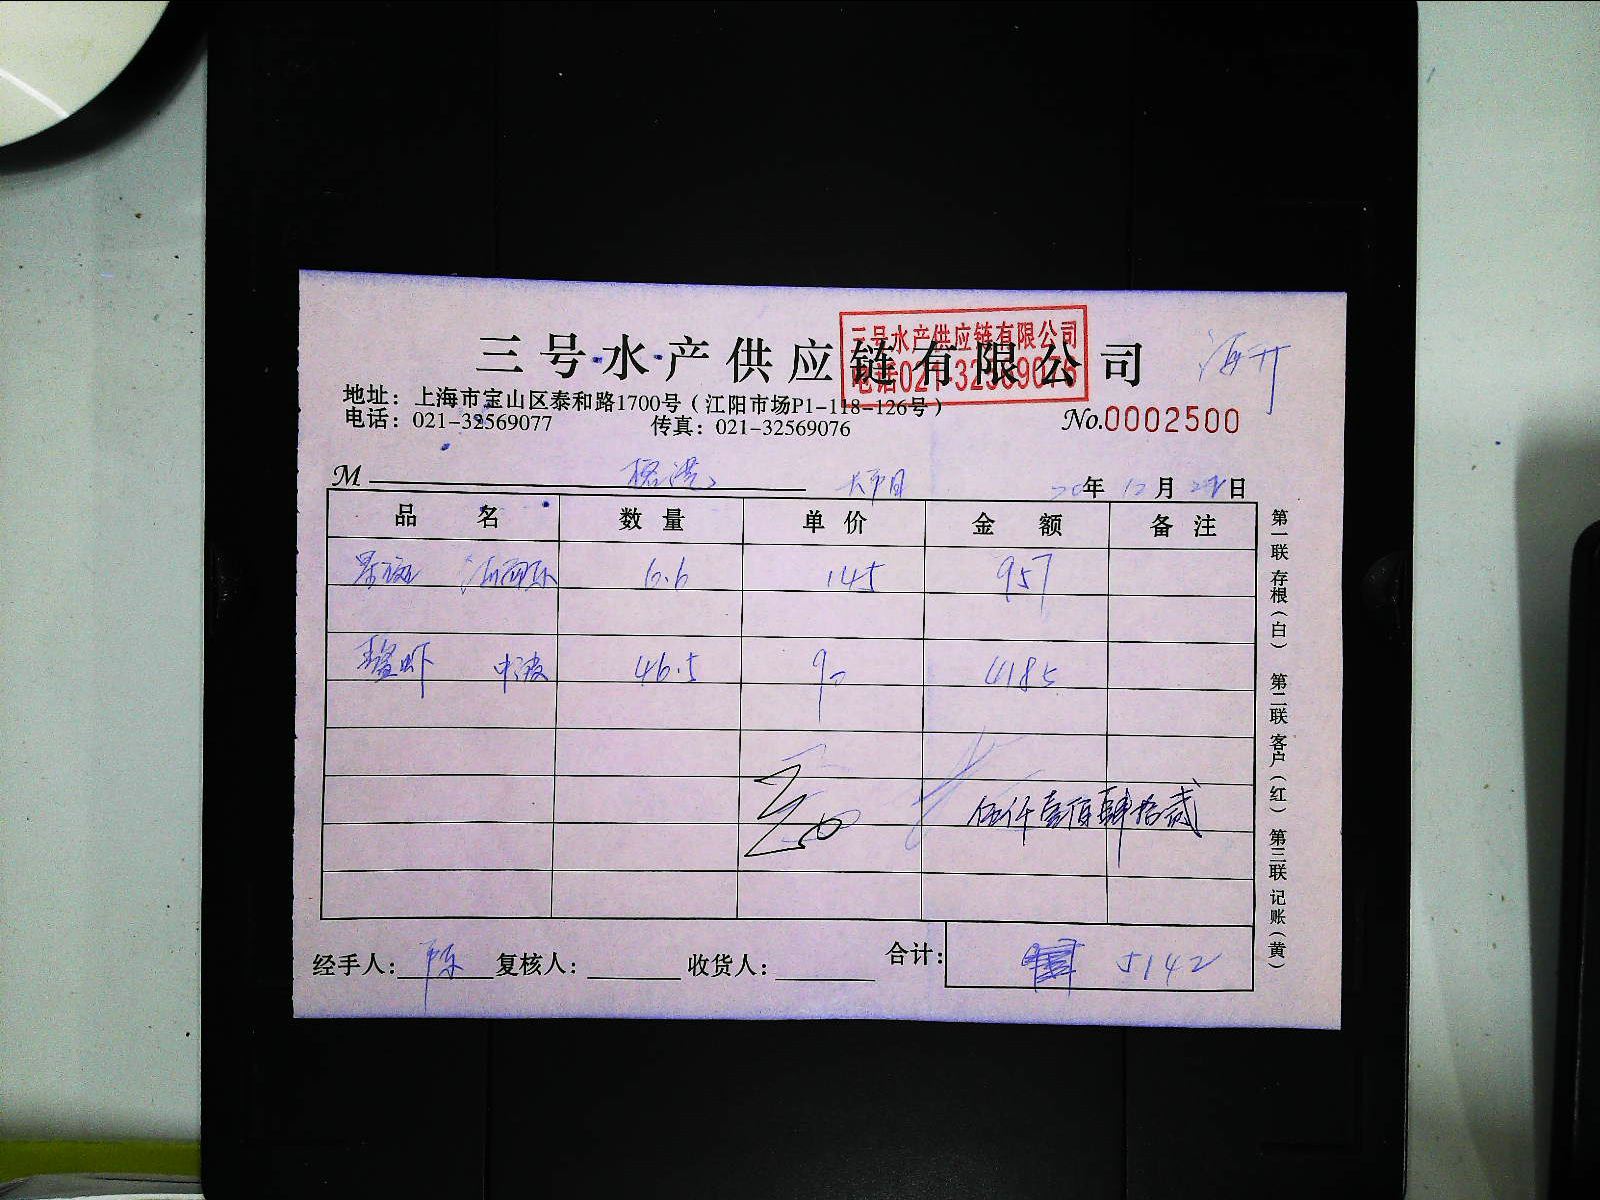 三号水产供应链有限公司
三号水产供应链有限公司
电话021-32569076
地址：上海市宝山区泰和路1700号（江阳市场P1-118-126号）
电话：021-32569077 传真：021-32569076
No.0002500
M 20年12月 日
品名 数量 单价 金额 备注
6.6 145 957
虾 46.5 90 4185
伍仟壹佰肆拾贰
经手人： 复核人： 收货人： 合计： 5142
第一联 存根（白） 第二联 客户（红） 第三联 记账（黄）